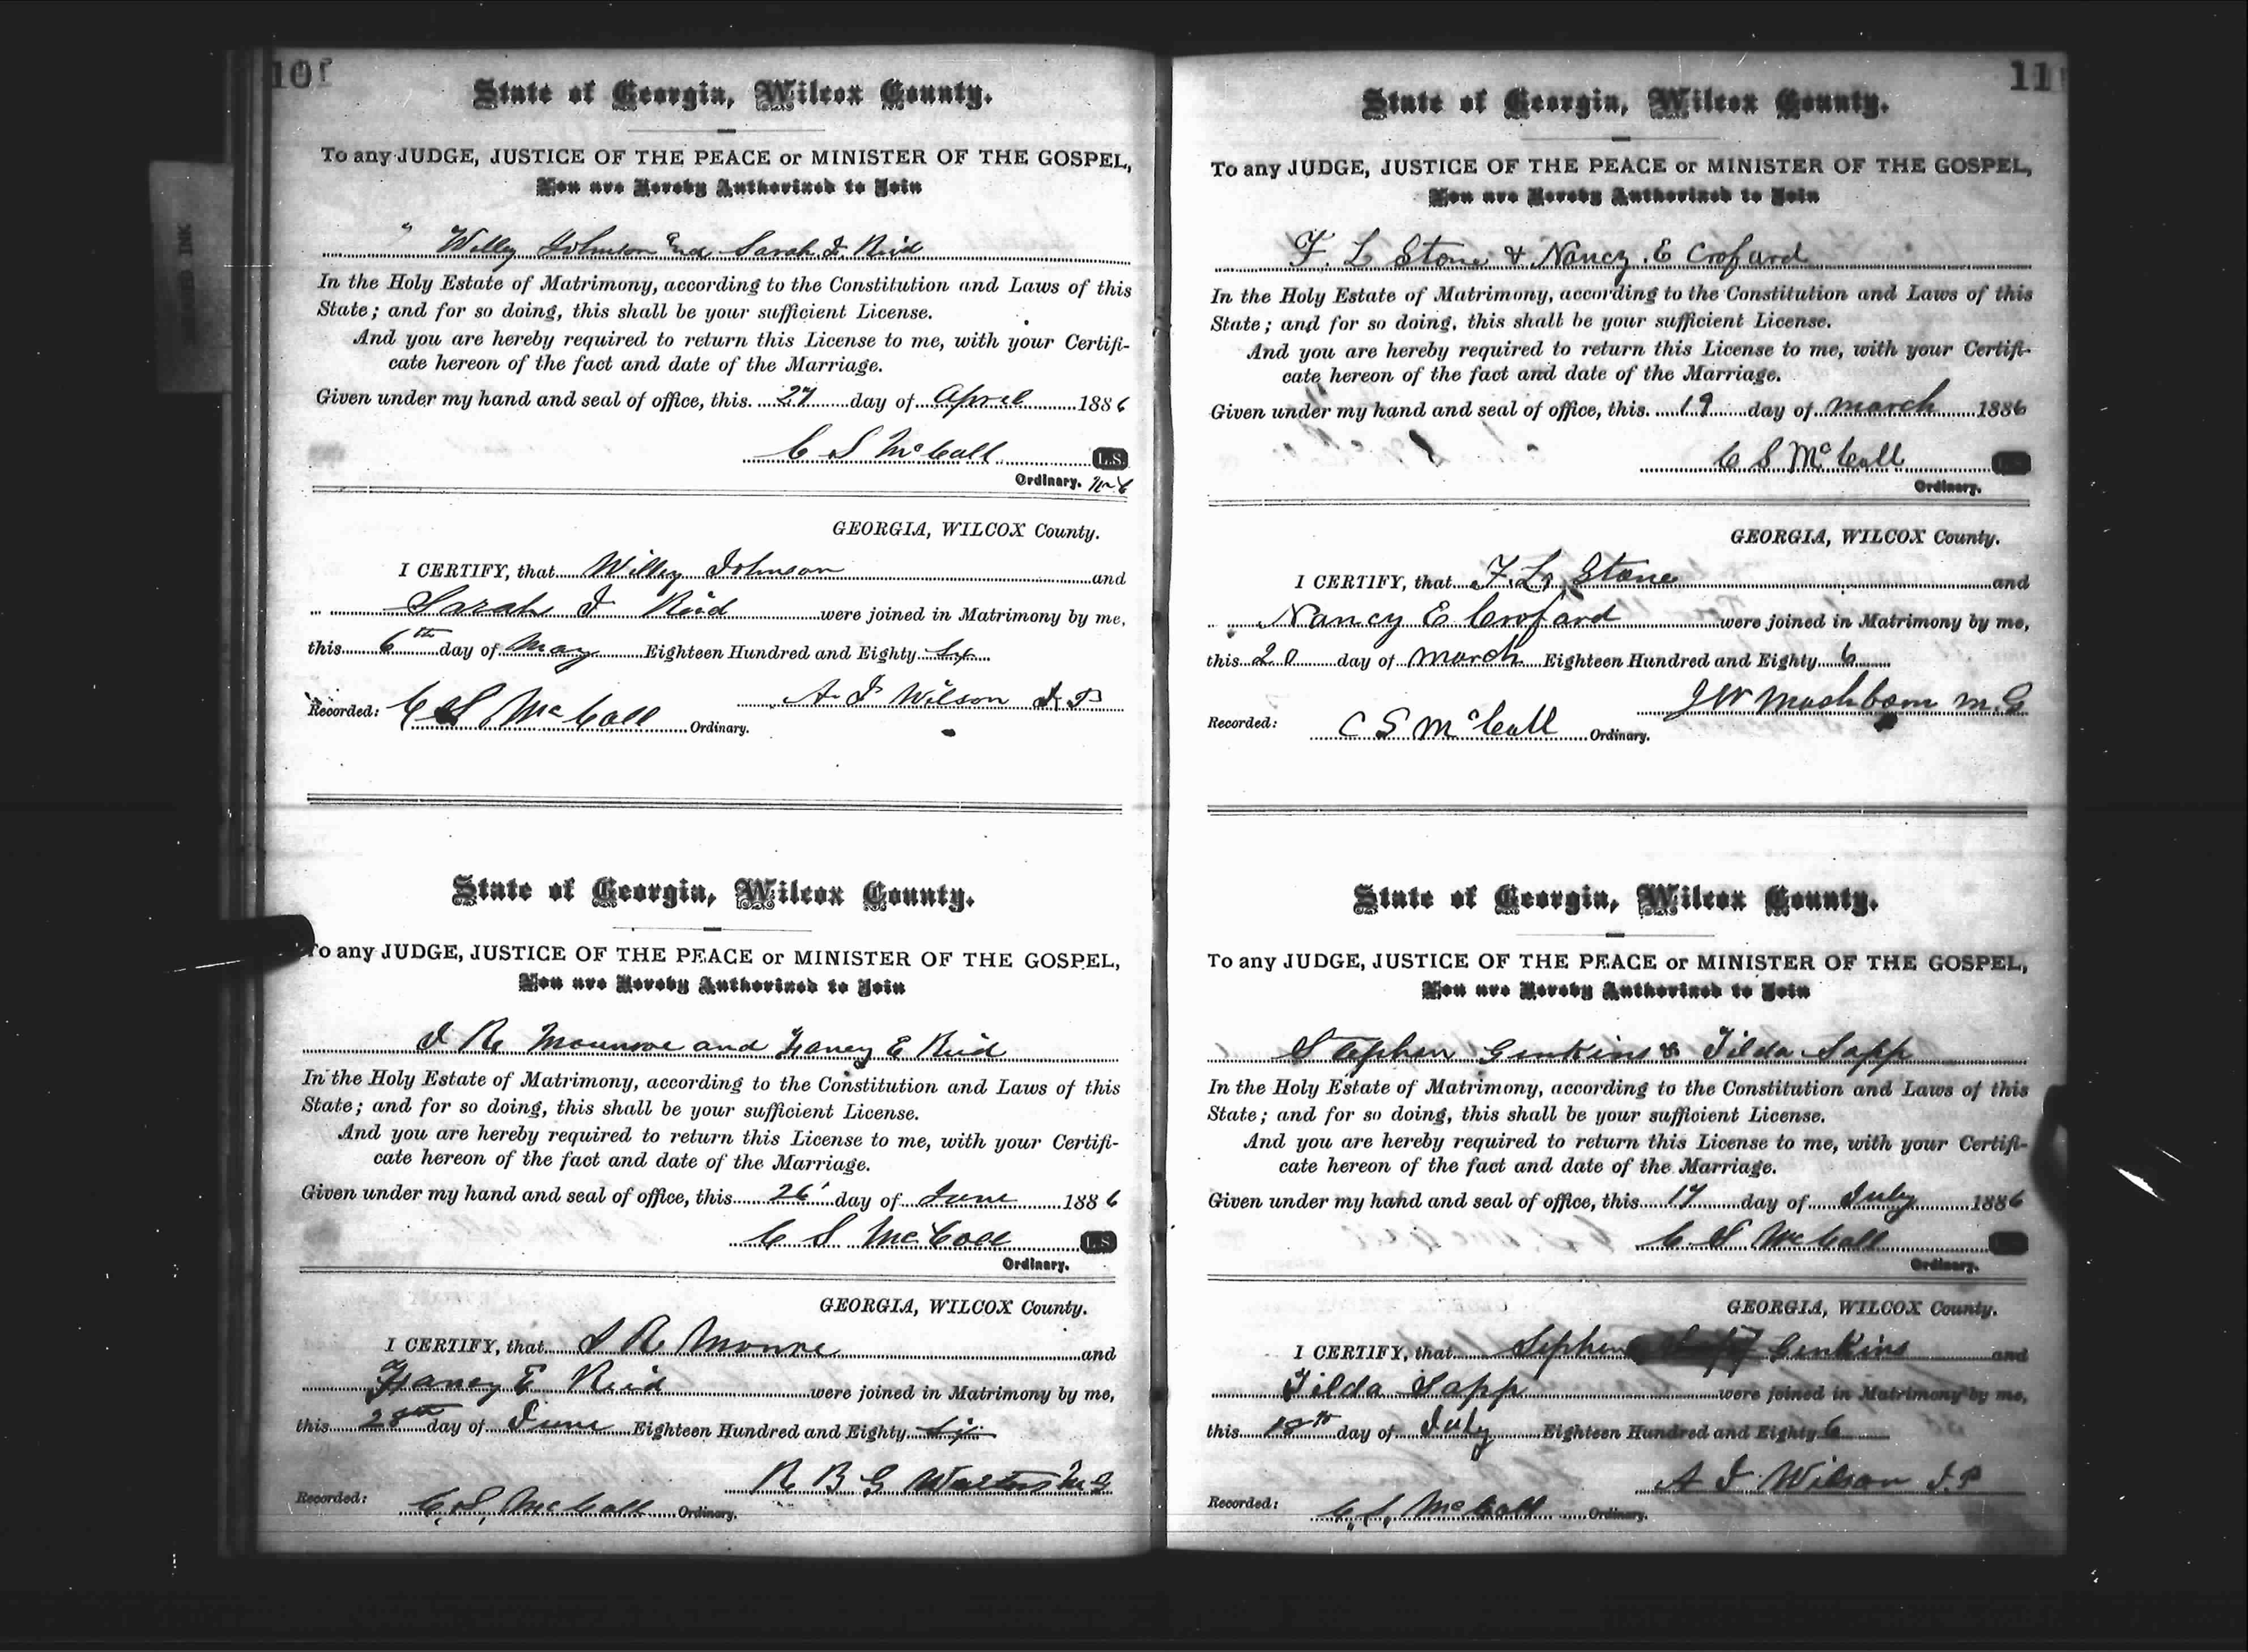 10
State of Georgia, Wilcox County.
To any JUDGE, JUSTICE OF THE PEACE or MINISTER OF THE GOSPEL,
You are Hereby Authorized to Join
Willey Johnson and Sarah J Reid
In the Holy Estate of Matrimony, according to the Constitution and Laws of this
State; and for so doing, this shall be your sufficient License.
And you are hereby required to return this License to me, with your Certifi-
cate hereon of the fact and date of the Marriage.
Given under my hand and seal of office, this 27 day of April 1886
C S McCall L.S.
Ordinary.
GEORGIA, WILCOX County.
I CERTIFY, that Willey Johnson and
Sarah J Reid were joined in Matrimony by me,
this 6th day of May Eighteen Hundred and Eighty Six
A J Wilson J P
Recorded: C S McCall Ordinary.
State of Georgia, Wilcox County.
To any JUDGE, JUSTICE OF THE PEACE or MINISTER OF THE GOSPEL,
You are Hereby Authorized to Join
J R Mounroe and Haney E Reid
In the Holy Estate of Matrimony, according to the Constitution and Laws of this
State; and for so doing, this shall be your sufficient License.
And you are hereby required to return this License to me, with your Certifi-
cate hereon of the fact and date of the Marriage.
Given under my hand and seal of office, this 26 day of June 1886
C S McCall L.S.
Ordinary.
GEORGIA, WILCOX County.
I CERTIFY, that J R Monroe and
Haney E Reid were joined in Matrimony by me,
this 28th day of June Eighteen Hundred and Eighty Six
R B G Walters M G
Recorded: C S McCall Ordinary.
11
State of Georgia, Wilcox County.
To any JUDGE, JUSTICE OF THE PEACE or MINISTER OF THE GOSPEL,
You are Hereby Authorized to Join
F. L Stone & Nancy E Crofard
In the Holy Estate of Matrimony, according to the Constitution and Laws of this
State; and for so doing, this shall be your sufficient License.
And you are hereby required to return this License to me, with your Certifi-
cate hereon of the fact and date of the Marriage.
Given under my hand and seal of office, this 19 day of march 1886
C S McCall
Ordinary.
GEORGIA, WILCOX County.
I CERTIFY, that F. L. Stone and
Nancy E Crofard were joined in Matrimony by me,
this 20 day of march Eighteen Hundred and Eighty 6
J W Mashborn M. G
Recorded: C S McCall Ordinary.
State of Georgia, Wilcox County.
To any JUDGE, JUSTICE OF THE PEACE or MINISTER OF THE GOSPEL,
You are Hereby Authorized to Join
Stephen Genkins & Tilda Sapp
In the Holy Estate of Matrimony, according to the Constitution and Laws of this
State; and for so doing, this shall be your sufficient License.
And you are hereby required to return this License to me, with your Certifi-
cate hereon of the fact and date of the Marriage.
Given under my hand and seal of office, this 17 day of July 1886
C S McCall
Ordinary.
GEORGIA, WILCOX County.
I CERTIFY, that Sephen Genkins and
Tilda Sapp were joined in Matrimony by me,
this 18th day of July Eighteen Hundred and Eighty 6
A J Wilson J. P
Recorded: C. S. McCall Ordinary.